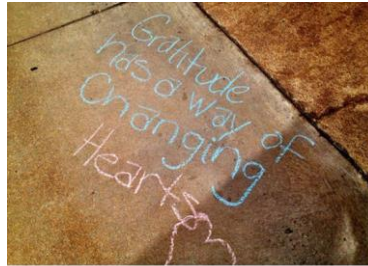 Gratitude
has a way of
Changing
Hearts